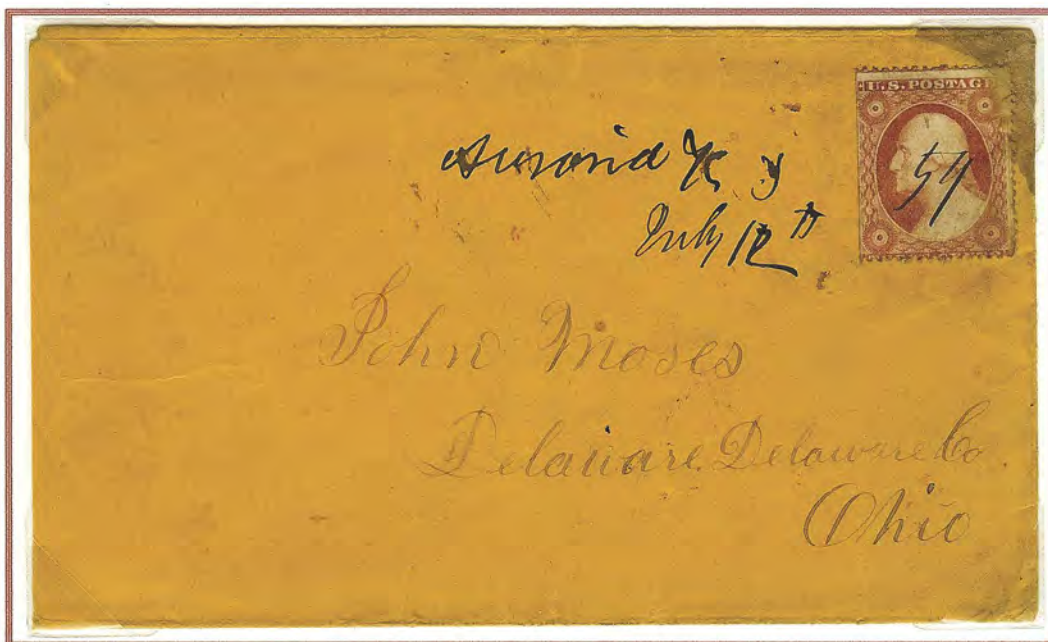 U.S. POSTAG
Auraria K T
59
July 12th
John Moses
Delaware Delaware Co
Ohio